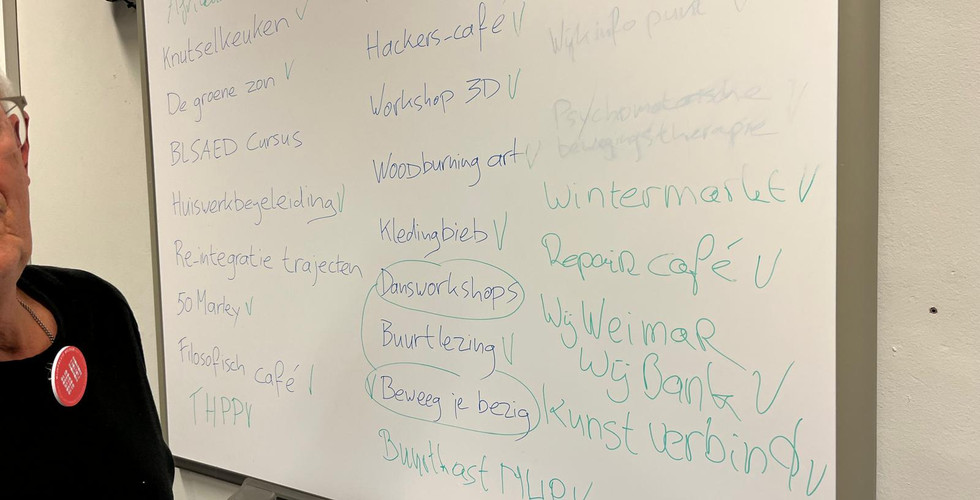 Knutselkeuken V
De groene zon V
BLSAED Cursus
Huiswerkbegeleiding V
Re-integratie trajecten
50 Marley V
Filosofisch café V
THPP V
Hackers-café V
Workshop 3D V
Woodburning art V
Kledingbieb V
Dansworkshops
Buurtlezing V
V Beweeg je bezig
Wijkinfopunt V
Psychomotorische V
bewegingstherapie
Wintermarkt V
Repair café V
Wij Weimar
Wij Bank V
Kunst verbind V